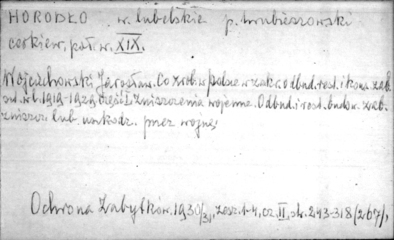 HORODŁO w. lubelskie p. hrubieszowski
cerkiew, poł. w. XIX.
Wojciechowski Jarosław. Co zrob. w Polsce w zakr. odbud. rest. i kons. zab.
od r. 1919-1929. Część I. Zniszczenia wojenne. Odbud. i rest. budow. zab.
zniszcz. lub uszkodz. przez wojnę,
Ochrona Zabytków. 1930/31, zesz. 1-4, cz. II, str. 243-318 (267),